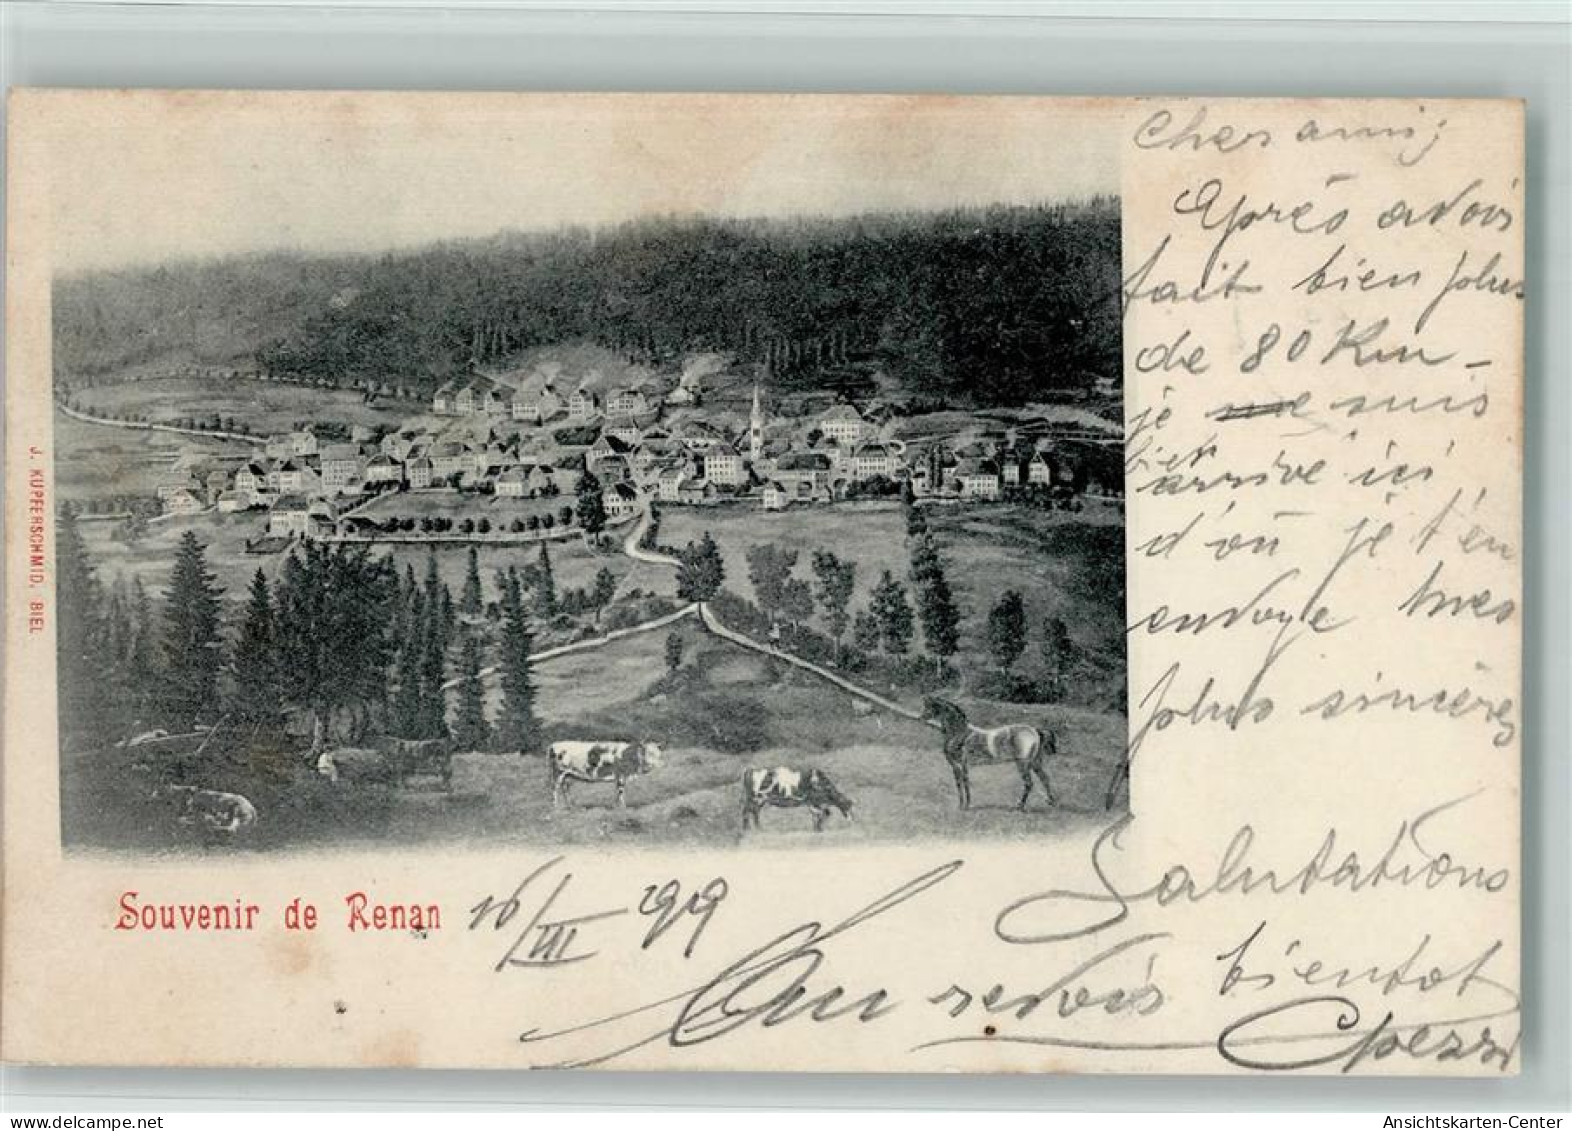 Cher ami;
Après avoir
fait bien plus
de 80 Km -
je me suis
bien
arrivé ici
d'où je t'en
envoye mes
plus sincères
Salutations
Au revoir bientot
J. KUPFERSCHMID, BIEL
Souvenir de Renan
16/III 99
delcampe.net
Ansichtskarten-Center